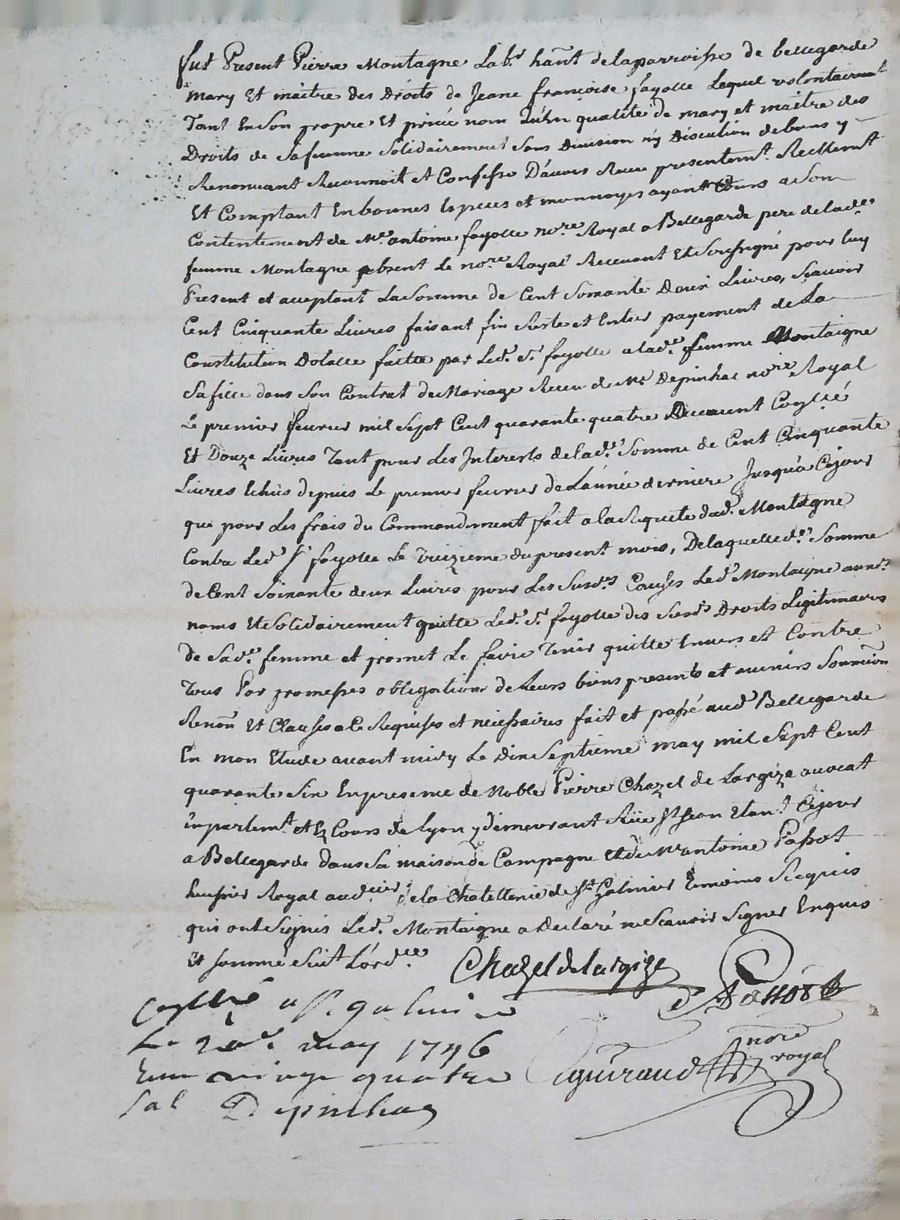 fut Present Pierre Montagne Lab.r hãnt de la parroisse de bellegarde
mary Et maitre des Droits de Jeane françoise fayolle Lequel volontairemt
Tant En son propre Et privé nom qu'En qualité de mary et maitre des
Droits de sa femme solidairement sans Division ny Discution de biens y
Renonçant Reconnoit et Confesse D'avoir Receu presentemt. Reellemt
Et Comptant En bonnes Especes et monnoyes ayant Cours a son
Contentement de Me. antoine fayolle nore. Royal a Bellegarde pere de lade.
femme Montagne absent Le nore. Royal Recevant Et soussigné pour luy
Present et acceptant La somme de Cent soixante Deux Livres, sçavoir
Cent Cinquante Livres faisant fin Reste et Entier payement de La
Constitution Dotalle faitte par Led. Sr. fayolle a lade. femme Montaigne
sa fille dans son Contrat de Mariage Receu de Me. Depinhac nore. Royal
Le premier fevrier mil sept Cent quarante quatre Deuement Conllé
Et Douze Livres Tant pour Les Interests de lade. somme de Cent Cinquante
Livres Echus depuis Le premier fevrier de L'année derniere Jusqu'a Cejour
que pour Les frais du Commandement fait a la Requete dud. Montagne
Contre Led. Sr. fayolle Le Treizieme du present mois, De laquelle de. somme
de Cent soixante deux Livres pour Les susds. Causes Led. Montaigne auxds.
noms Et solidairement quitte Led. Sr. fayolle des susds. Droits Legitimaires
de sade. femme et promet Le faire Tenir quitte Envers et Contre
Tous Par promesses obligations de Leurs biens presents et avenirs soumõn
Renõn Et Clauses a Ce Requises et necessaires fait et passé aud. Bellegarde
En mon Etude avant midy Le Dix septieme may mil sept Cent
quarante six En presence de Noble Pierre Chazel de Largize avocat
En parlemt. Et Es Cours de Lyon y demeurant Rüe St. Jean Etant Cejour
a Bellegarde dans sa maison de Campagne Et de Me. antoine Passot
huissier Royal audcier. de la Chatellenie de St. Galmier Temoins Requis
qui ont signés Led. Montaigne a Declaré ne sçavoir signer Enquis
Et sommé suivt. L'ordce.
Chazel de Largize
Passot
Conllé a St. galmier
Le 20e. may 1746
Reçu vingt quatre
sols Depinhac
guirand nore royal